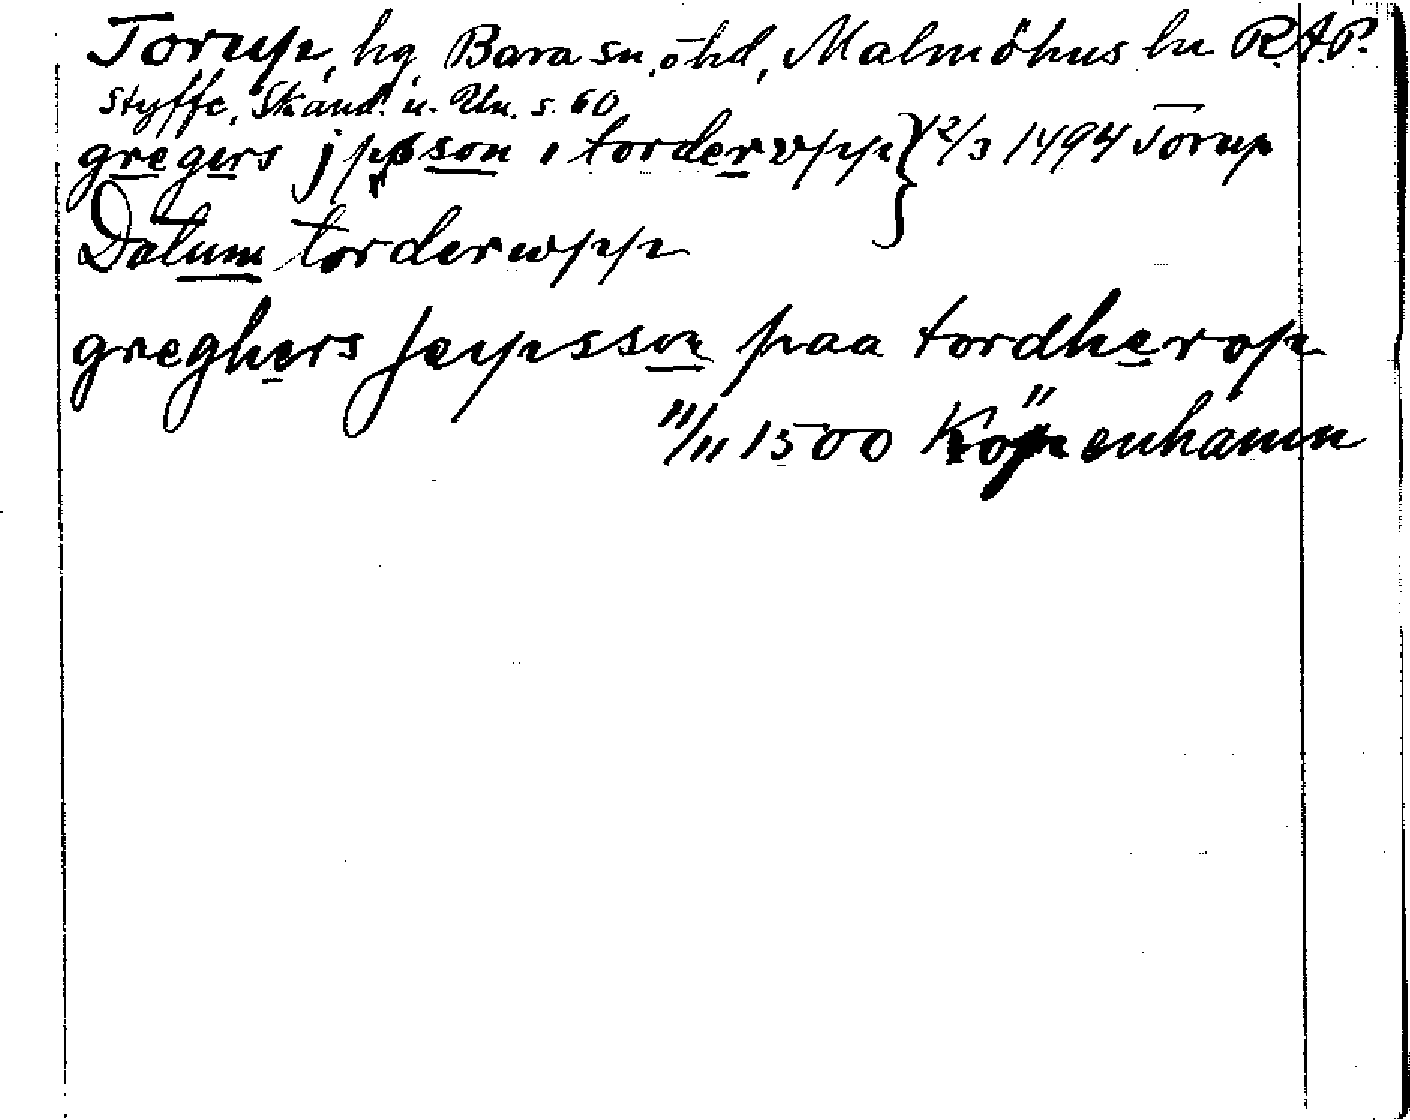 Torup, hg, Bara sn, o hd, Malmöhus ln R.A.P.
Styffe, Skand. u. Un. s. 60
gregers jpsson i tordervpp } 12/3 1494 Torup
Datum torderwpp
greghers Jeypsson paa tordherop
11/11 1500 Köpenhamn